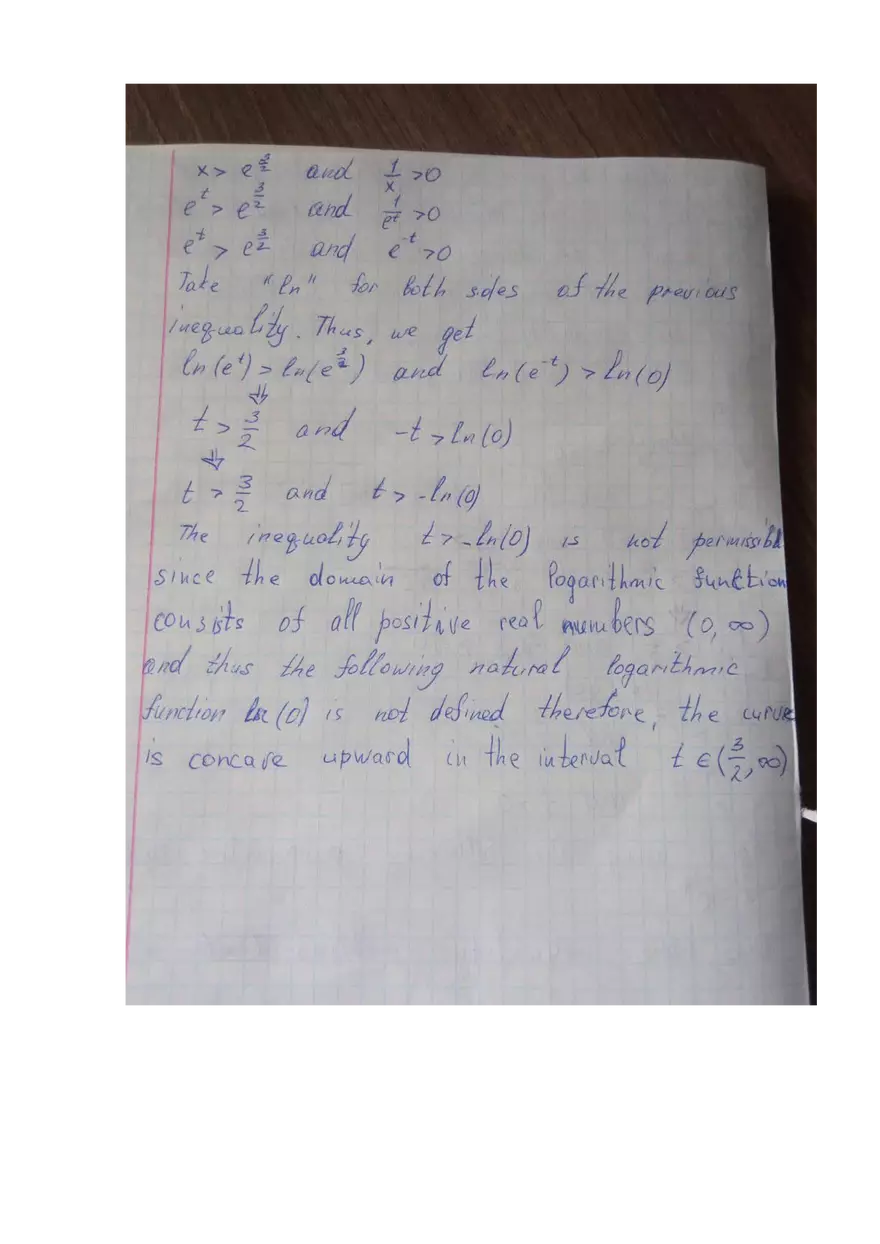 x > e^{3/2} and 1/x > 0
e^t > e^{3/2} and 1/e^t > 0
e^t > e^{3/2} and e^{-t} > 0
Take "ln" for both sides of the previous
inequality. Thus, we get
ln(e^t) > ln(e^{3/2}) and ln(e^{-t}) > ln(0)
⇓
t > 3/2 and -t > ln(0)
⇓
t > 3/2 and t > -ln(0)
The inequality t > -ln(0) is not permissibl
since the domain of the logarithmic function
consists of all positive real numbers (0, ∞)
and thus the following natural logarithmic
function ln(0) is not defined therefore, the curve
is concave upward in the interval t ∈ (3/2, ∞)